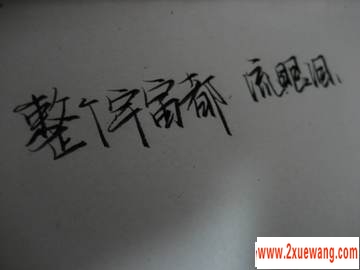 整个宇宙都 流眼泪
www.2xuewang.com